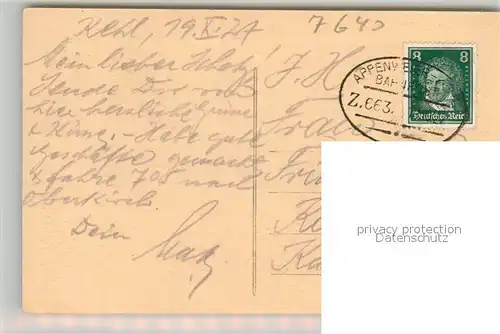 Kehl, 19.X.27
7640
Mein lieber Schatz!
Sende Dir von
hier herzliche Grüsse
& Küsse. Habe gute
Geschäfte gemacht
& fahre 708 nach
Oberkirch.
Dein
Max
F. H.
Frau
8 8
Deutsches Reich
APPENWEI
BAH
Z.663.
privacy protection
Datenschutz